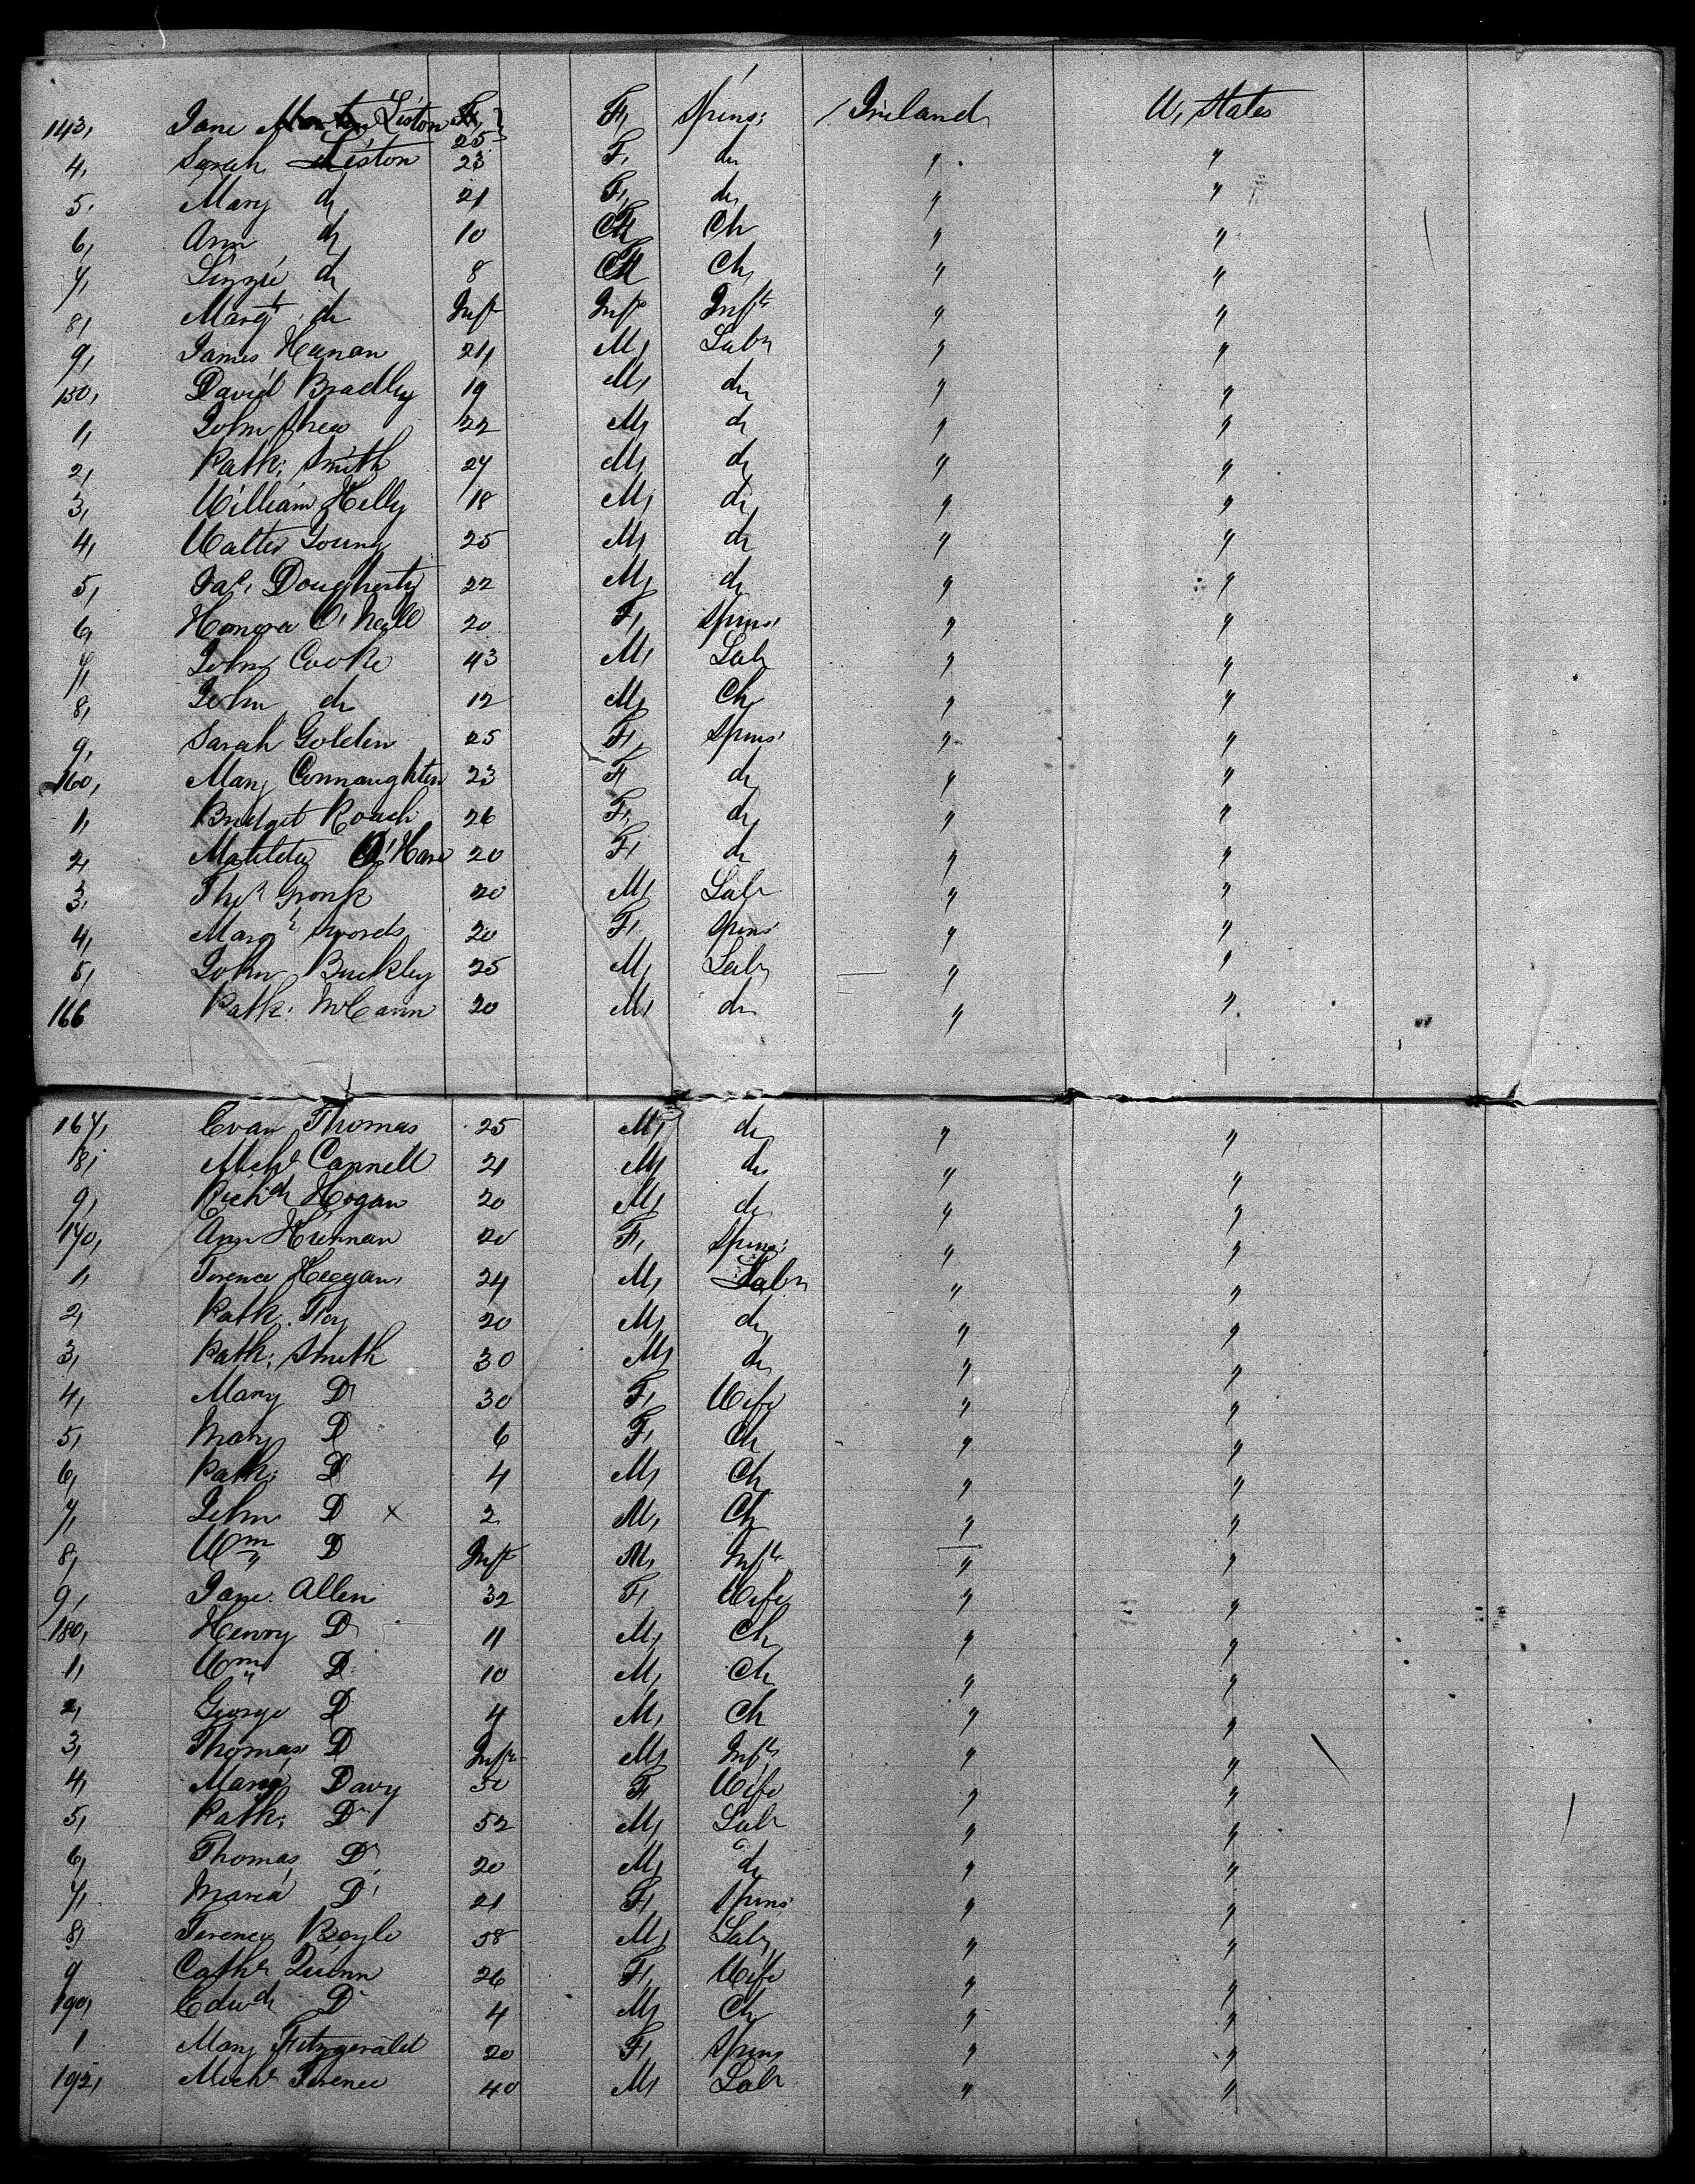 143, Jane Liston 25 F, Spins: Ireland U, States
4, Sarah Liston 23 F, do " "
5, Mary do 21 F, do " "
6, Ann do 10 Ch " "
7, Lizzie do 8 Ch, " "
8, Margt do Inft Inft Inft " "
9, James Hanan M, Labr " "
150, David Bradley 19 M, do " "
1, John Shea 22 M, do " "
2, Patk: Smith 27 M, do " "
3, William Kelly 18 M, do " "
4, Walter Young 25 M, do " "
5, Jas. Dougherty 22 M, do " "
6, Honora O'Neill 20 F, Spins' " "
7, John Cooke 43 M, Labr " "
8, John do 12 M, Ch " "
9, Sarah Golden 25 F, Spins' " "
160, Mary Connaughten 23 F do " "
1, Bridget Roach 26 F, do " "
2, Matilda O'Hare 20 F, do " "
3, Thos Gronk 20 M, Labr " "
4, Margt Swords 20 F, Spins' " "
5, John Buckley 25 M, Labr " "
166 Patk: McCann 20 M, do " "
167, Evan Thomas 25 M, do " "
8, Michl Cannell 21 M, do " "
9, Richd Hogan 20 M, do " "
170, Ann Hiernan 20 F, Spins: " "
1, Terence Keegan, 24 M, Labr " "
2, Patk: Foy 20 M, do " "
3, Patk: Smith 30 M, do " "
4, Mary Do 30 F, Wife " "
5, Mary D 6 F, Ch " "
6, Patk: D 4 M, Ch " "
7, John D x 2 M, Ch " "
8, Wm D Inft M, Inft " "
9, Jane Allen 32 F, Wife " "
180, Henry D 11 M, Ch " "
1, Wm D 10 M, Ch " "
2, George D 4 M, Ch " "
3, Thomas D Inft M, Inft " "
4, Davy 50 F, Wife " "
5, Patk: D 52 M, Labr " "
6, Thomas D 20 M, do " "
7, Maria D 21 F, Spins' " "
8, Terence Boyle 58 M, Labr " "
9 Cathe Quinn 26 F, Wife " "
190, Edwd D 4 M, Ch " "
1 Mary Fitzgerald 20 F, Spins " "
192, Michl Terence 40 M, Labr " "